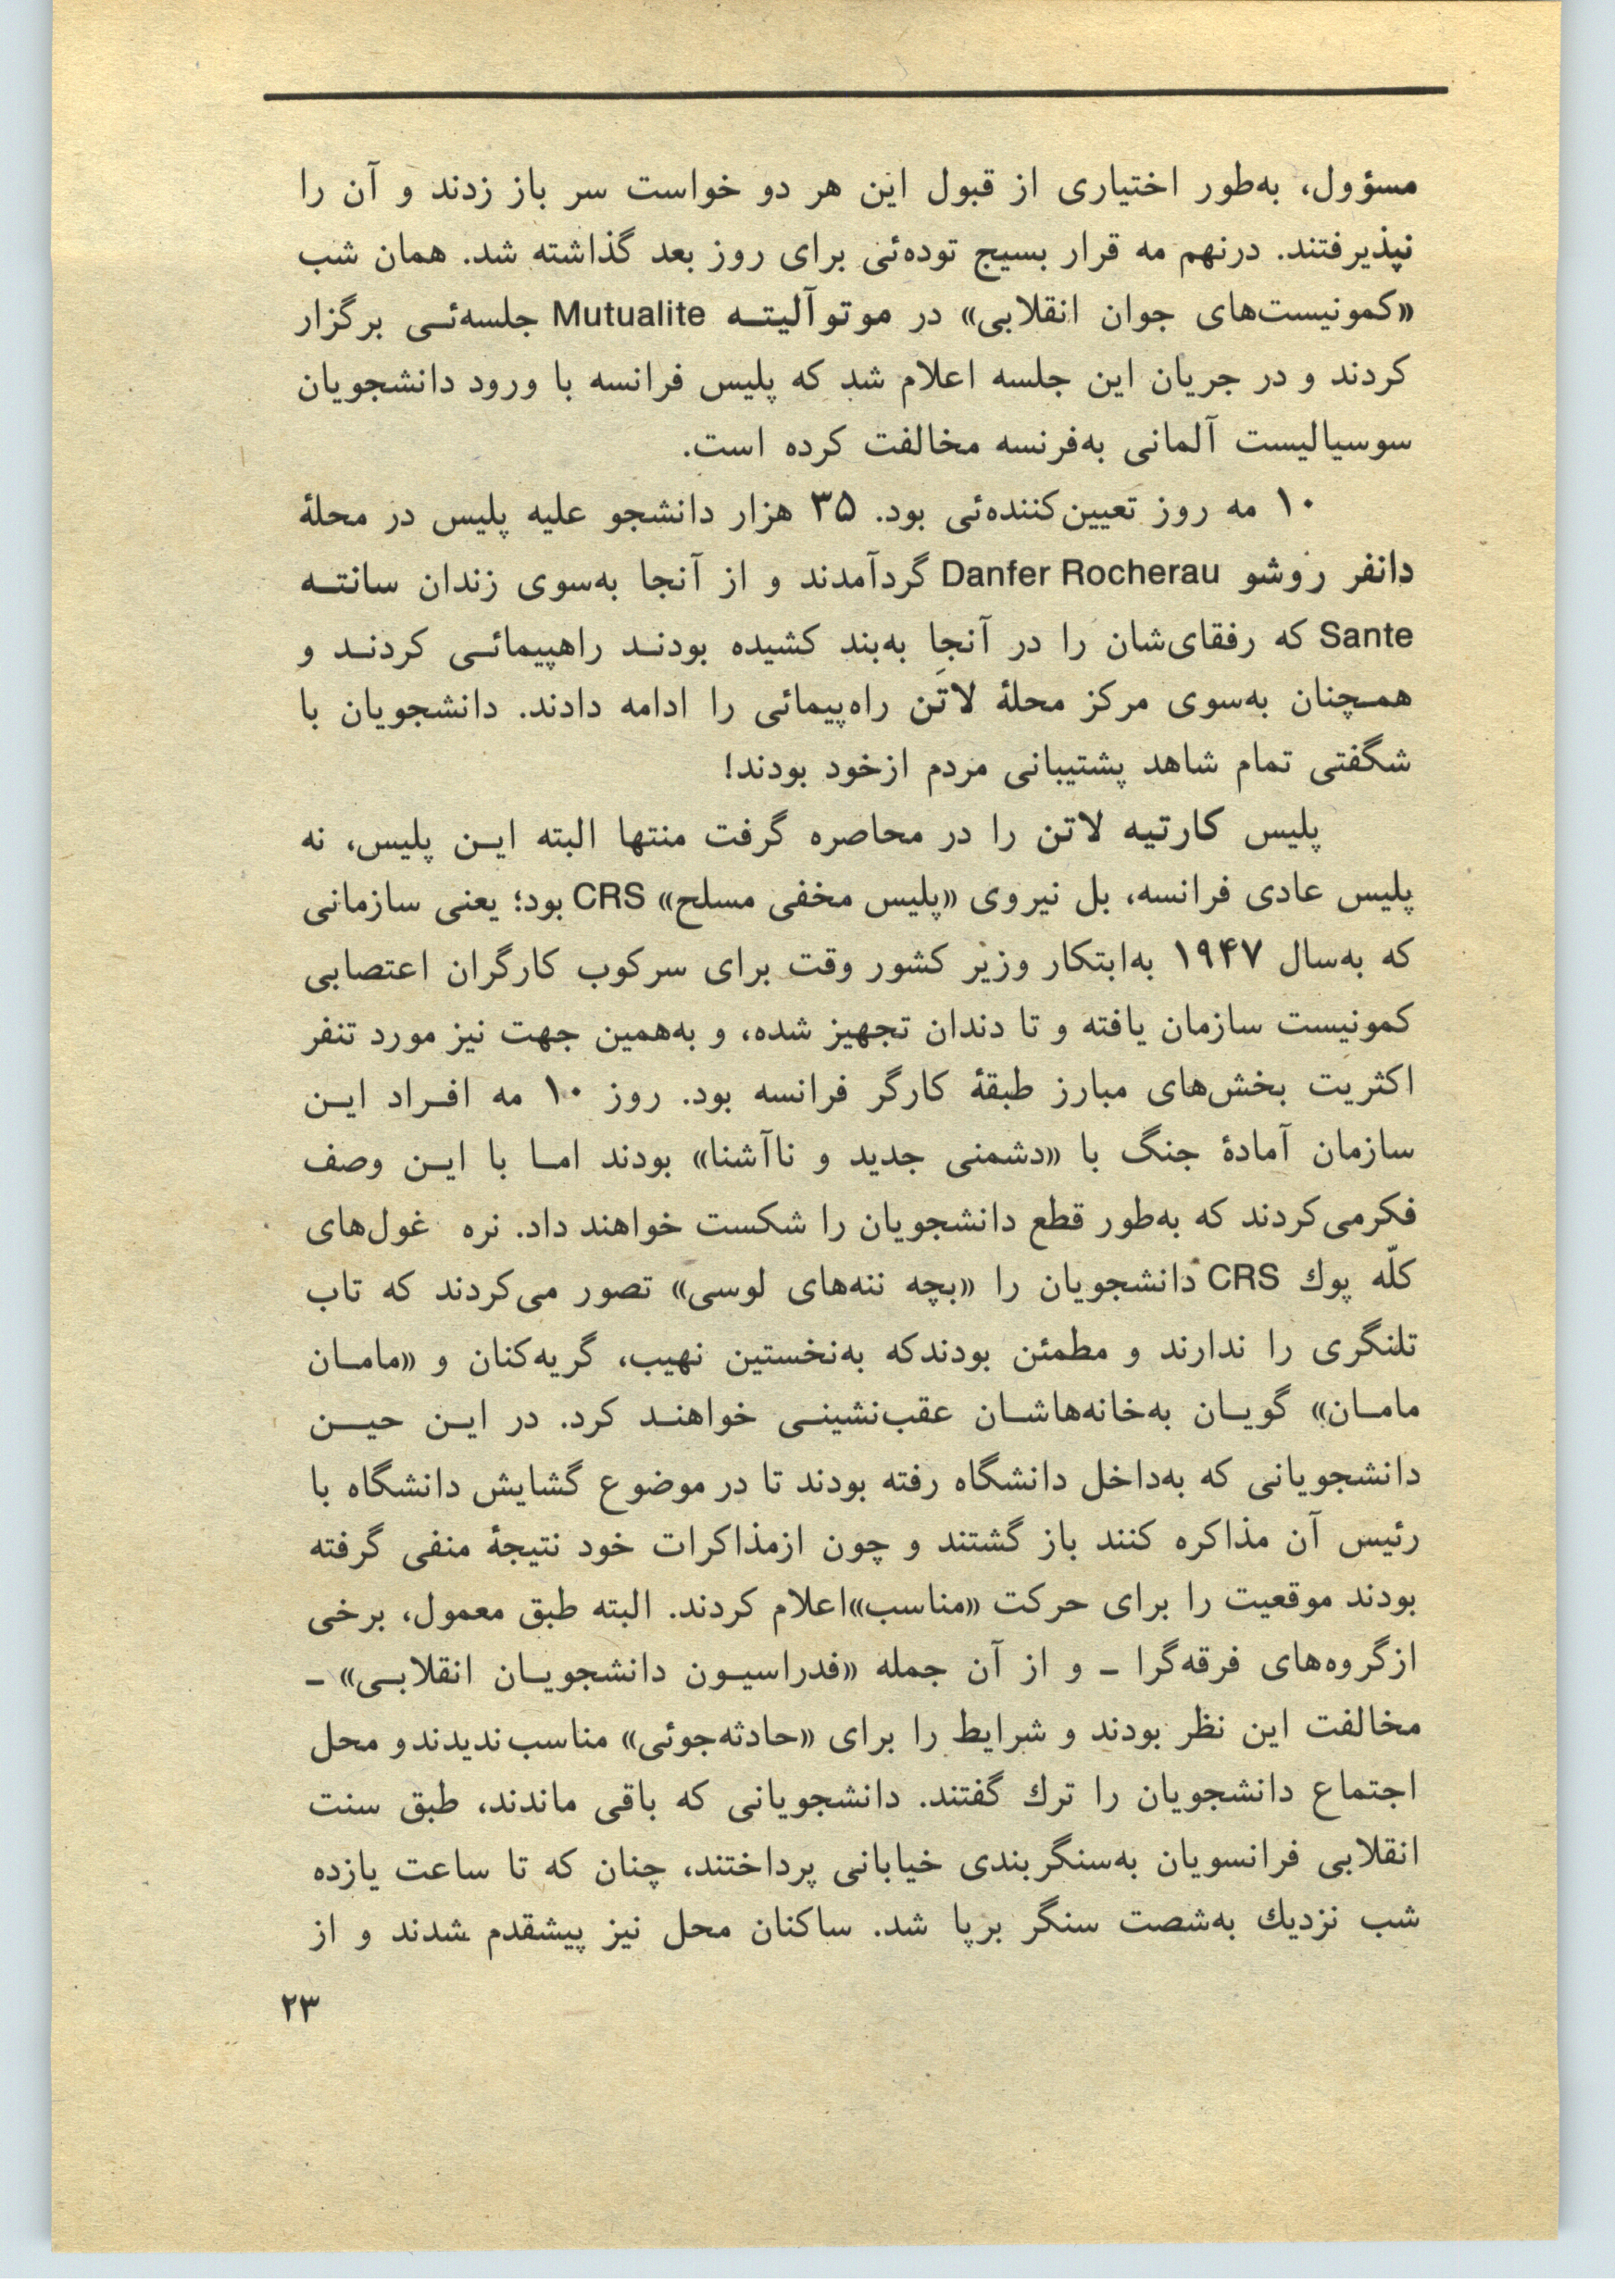 مسؤول، به‌طور اختیاری از قبول این هر دو خواست سر باز زدند و آن را
نپذیرفتند. درنهم مه قرار بسیج توده‌ئی برای روز بعد گذاشته شد. همان شب
«کمونیست‌های جوان انقلابی» در موتوآلیتـه Mutualite جلسه‌ئـی برگزار
کردند و در جریان این جلسه اعلام شد که پلیس فرانسه با ورود دانشجویان
سوسیالیست آلمانی به‌فرنسه مخالفت کرده است.
۱۰ مه روز تعیین‌کننده‌ئی بود. ۳۵ هزار دانشجو علیه پلیس در محلهٔ
دانفر روشو Danfer Rocherau گردآمدند و از آنجا به‌سوی زندان سانتـه
Sante که رفقای‌شان را در آنجا به‌بند کشیده بودنـد راهپیمائـی کردنـد و
همـچنان به‌سوی مرکز محلهٔ لاتَن راه‌پیمائی را ادامه دادند. دانشجویان با
شگفتی تمام شاهد پشتیبانی مردم ازخود بودند!
پلیس کارتیه لاتن را در محاصره گرفت منتها البته ایـن پلیس، نه
پلیس عادی فرانسه، بل نیروی «پلیس مخفی مسلح» CRS بود؛ یعنی سازمانی
که به‌سال ۱۹۴۷ به‌ابتکار وزیر کشور وقت برای سرکوب کارگران اعتصابی
کمونیست سازمان یافته و تا دندان تجهیز شده، و به‌همین جهت نیز مورد تنفر
اکثریت بخش‌های مبارز طبقهٔ کارگر فرانسه بود. روز ۱۰ مه افـراد ایـن
سازمان آمادهٔ جنگ با «دشمنی جدید و ناآشنا» بودند امـا با ایـن وصف
فکرمی‌کردند که به‌طور قطع دانشجویان را شکست خواهند داد. نره غول‌های
کلّه پوك CRS دانشجویان را «بچه ننه‌های لوسی» تصور می‌کردند که تاب
تلنگری را ندارند و مطمئن بودندکه به‌نخستین نهیب، گریه‌کنان و «مامـان
مامـان» گویـان به‌خانه‌هاشـان عقب‌نشینـی خواهنـد کرد. در ایـن حیـن
دانشجویانی که به‌داخل دانشگاه رفته بودند تا در موضوع گشایش دانشگاه با
رئیس آن مذاکره کنند باز گشتند و چون ازمذاکرات خود نتیجهٔ منفی گرفته
بودند موقعیت را برای حرکت «مناسب»اعلام کردند. البته طبق معمول، برخی
ازگروه‌های فرقه‌گرا ـ و از آن جمله «فدراسیـون دانشجویـان انقلابـی» ـ
مخالفت این نظر بودند و شرایط را برای «حادثه‌جوئی» مناسب‌ندیدندو محل
اجتماع دانشجویان را ترك گفتند. دانشجویانی که باقی ماندند، طبق سنت
انقلابی فرانسویان به‌سنگربندی خیابانی پرداختند، چنان که تا ساعت یازده
شب نزدیك به‌شصت سنگر برپا شد. ساکنان محل نیز پیشقدم شدند و از
۲۳